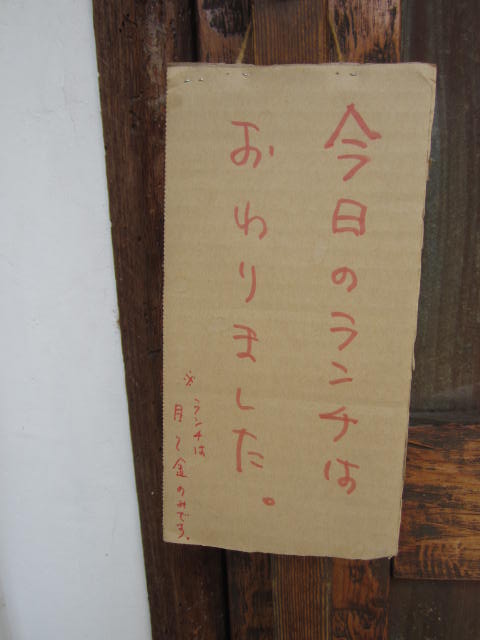 今日のランチは
おわりました。
※ランチは
月〜金のみです。